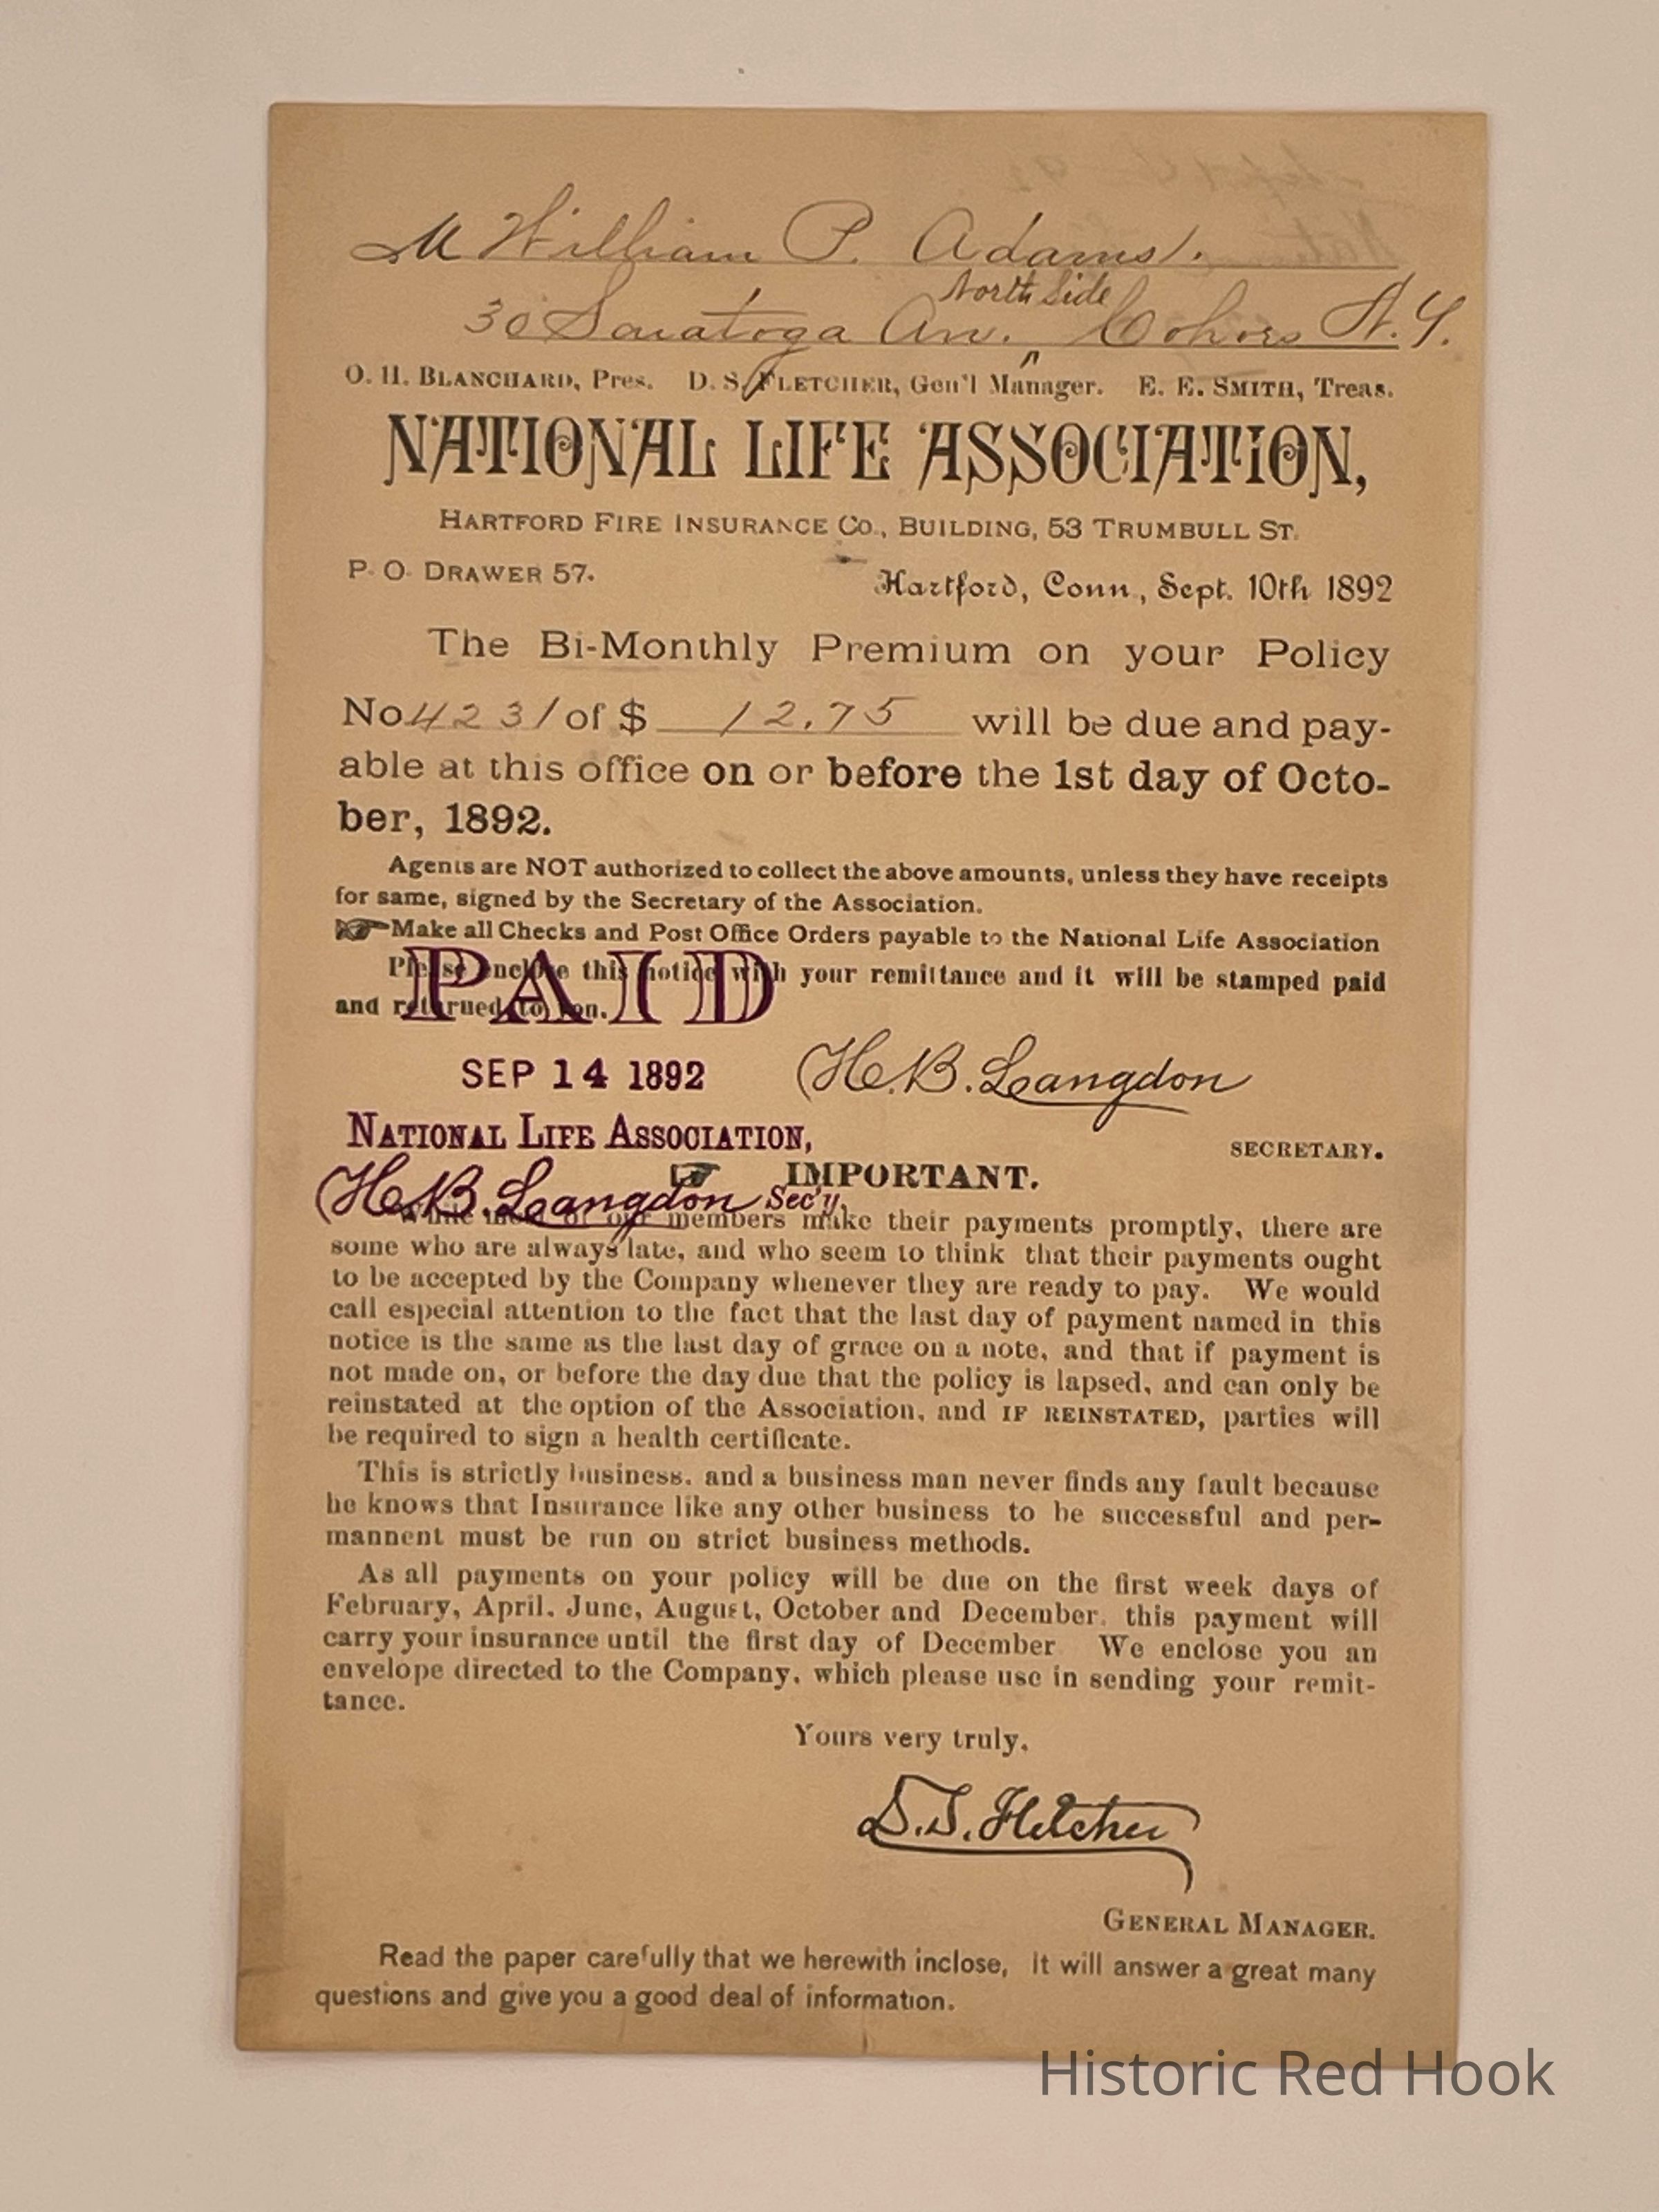 M William P. Adams.
North Side
30 Saratoga Av. ^ Cohoes N.Y.
O. H. BLANCHARD, Pres. D. S. FLETCHER, Gen'l Manager. E. E. SMITH, Treas.
NATIONAL LIFE ASSOCIATION,
HARTFORD FIRE INSURANCE CO., BUILDING, 53 TRUMBULL ST.
P. O. DRAWER 57. Hartford, Conn., Sept. 10th 1892
The Bi-Monthly Premium on your Policy
No 4231 of $ 12.75 will be due and pay-
able at this office on or before the 1st day of Octo-
ber, 1892.
Agents are NOT authorized to collect the above amounts, unless they have receipts
for same, signed by the Secretary of the Association.
Make all Checks and Post Office Orders payable to the National Life Association
Please enclose this notice with your remittance and it will be stamped paid
and returned to you.
PAID
SEP 14 1892
H. B. Langdon
SECRETARY.
NATIONAL LIFE ASSOCIATION,
H. B. Langdon Sec'y.
IMPORTANT.
While most of our members make their payments promptly, there are
some who are always late, and who seem to think that their payments ought
to be accepted by the Company whenever they are ready to pay. We would
call especial attention to the fact that the last day of payment named in this
notice is the same as the last day of grace on a note, and that if payment is
not made on, or before the day due that the policy is lapsed, and can only be
reinstated at the option of the Association, and IF REINSTATED, parties will
be required to sign a health certificate.
This is strictly business, and a business man never finds any fault because
he knows that Insurance like any other business to be successful and per-
mannent must be run on strict business methods.
As all payments on your policy will be due on the first week days of
February, April, June, August, October and December, this payment will
carry your insurance until the first day of December We enclose you an
envelope directed to the Company, which please use in sending your remit-
tance.
Yours very truly,
D. S. Fletcher
GENERAL MANAGER.
Read the paper carefully that we herewith inclose, It will answer a great many
questions and give you a good deal of information.
Historic Red Hook